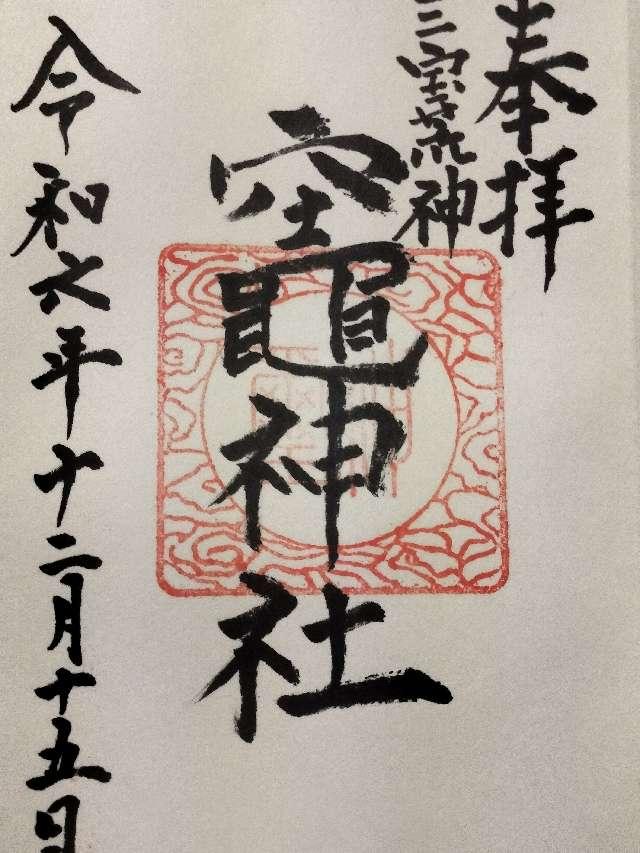 奉拝
三宝荒神
竈神社
令和六年十二月十五日